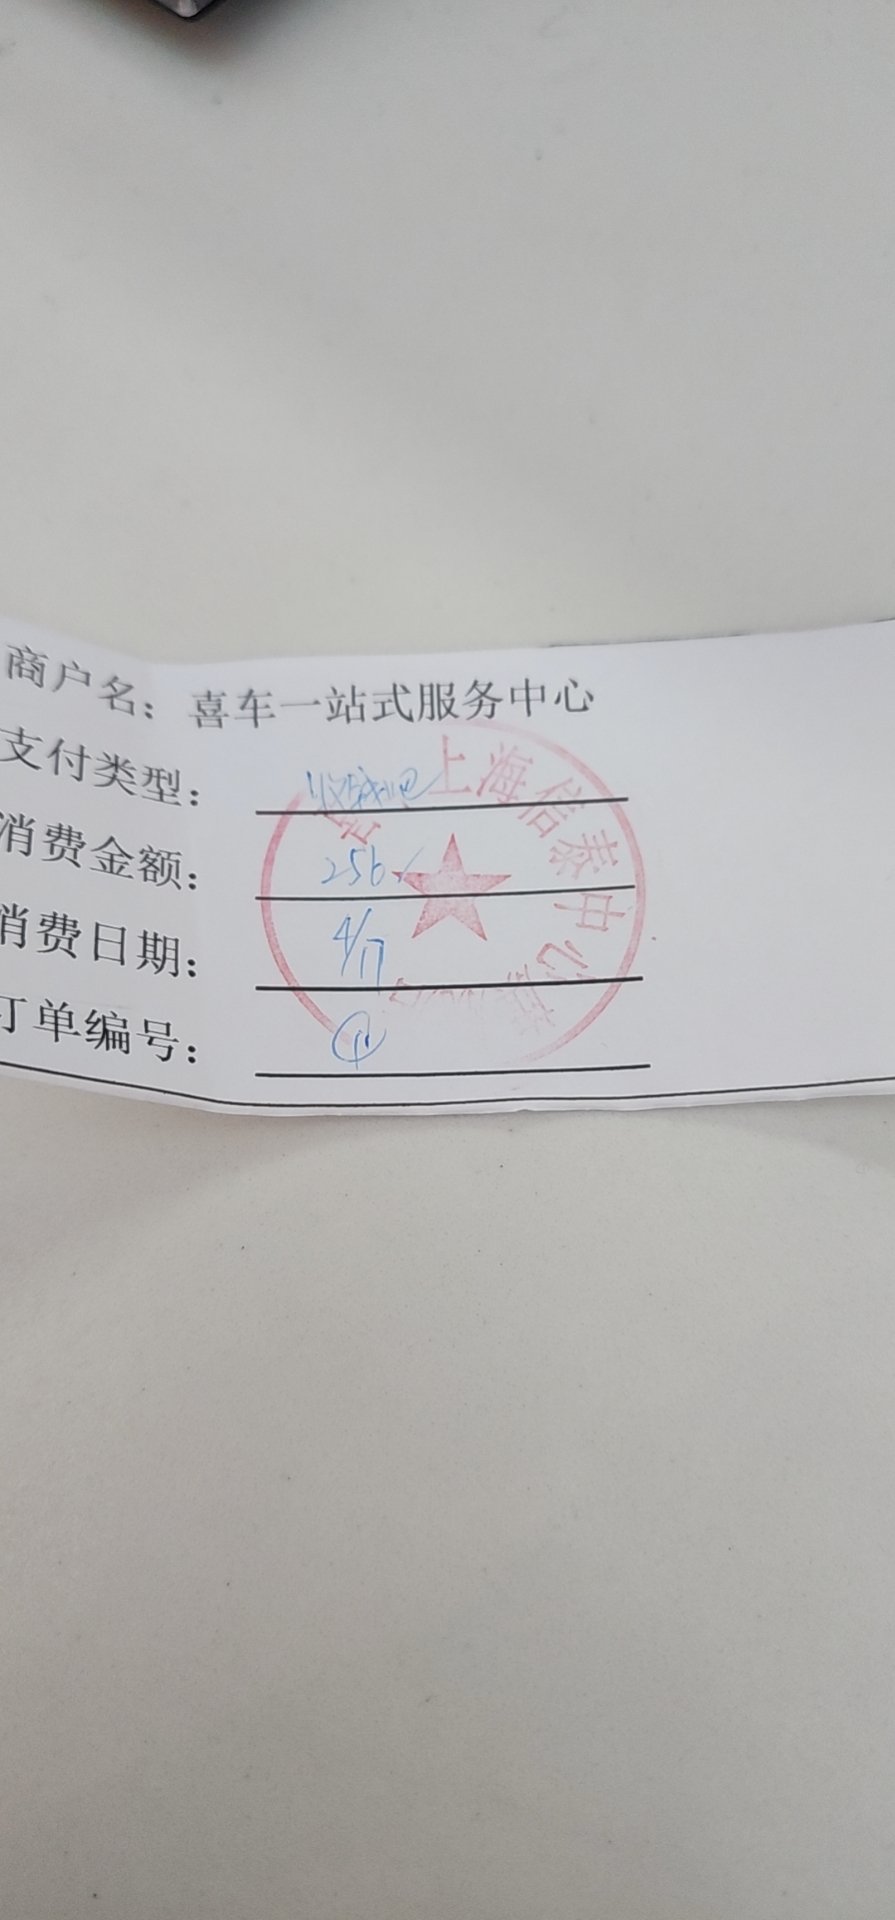 商户名：喜车一站式服务中心
支付类型：收钱吧
消费金额：256/
消费日期：4/17
订单编号：
上海信泰中心